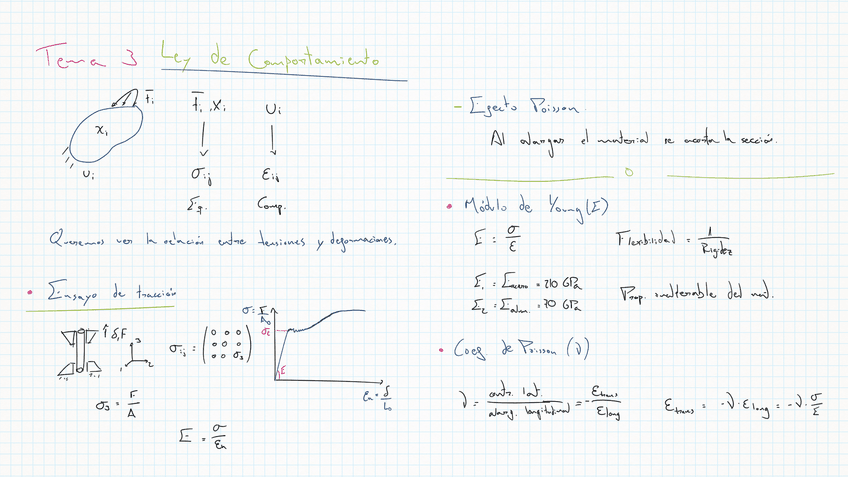 Tema 3 Ley de Comportamiento
f̄ᵢ
Xᵢ
Uᵢ
f̄ᵢ, Xᵢ Uᵢ
σᵢⱼ εᵢⱼ
Eq. Comp.
Queremos ver la relación entre tensiones y deformaciones.
• Ensayo de tracción
↑ δ, F
3
1 2
σᵢⱼ = (0 0 0
0 0 0
0 0 σ₃)
σ₃ = F/A
σ = F/A₀
σₑ
E
εₙ = δ/L₀
E = σ/εₙ
- Efecto Poisson
Al alargar el material se acorta la sección.
• Módulo de Young (E)
E = σ/ε Flexibilidad = 1/Rigidez
E₁ = Eacero = 210 GPa
E₂ = Ealum. = 70 GPa
Prop. inalterable del mat.
• Coef de Poisson (ν)
ν = contr. lat./alarg. longitudinal = -εtrans/εlong
εtrans = -ν·εlong = -ν·σ/E